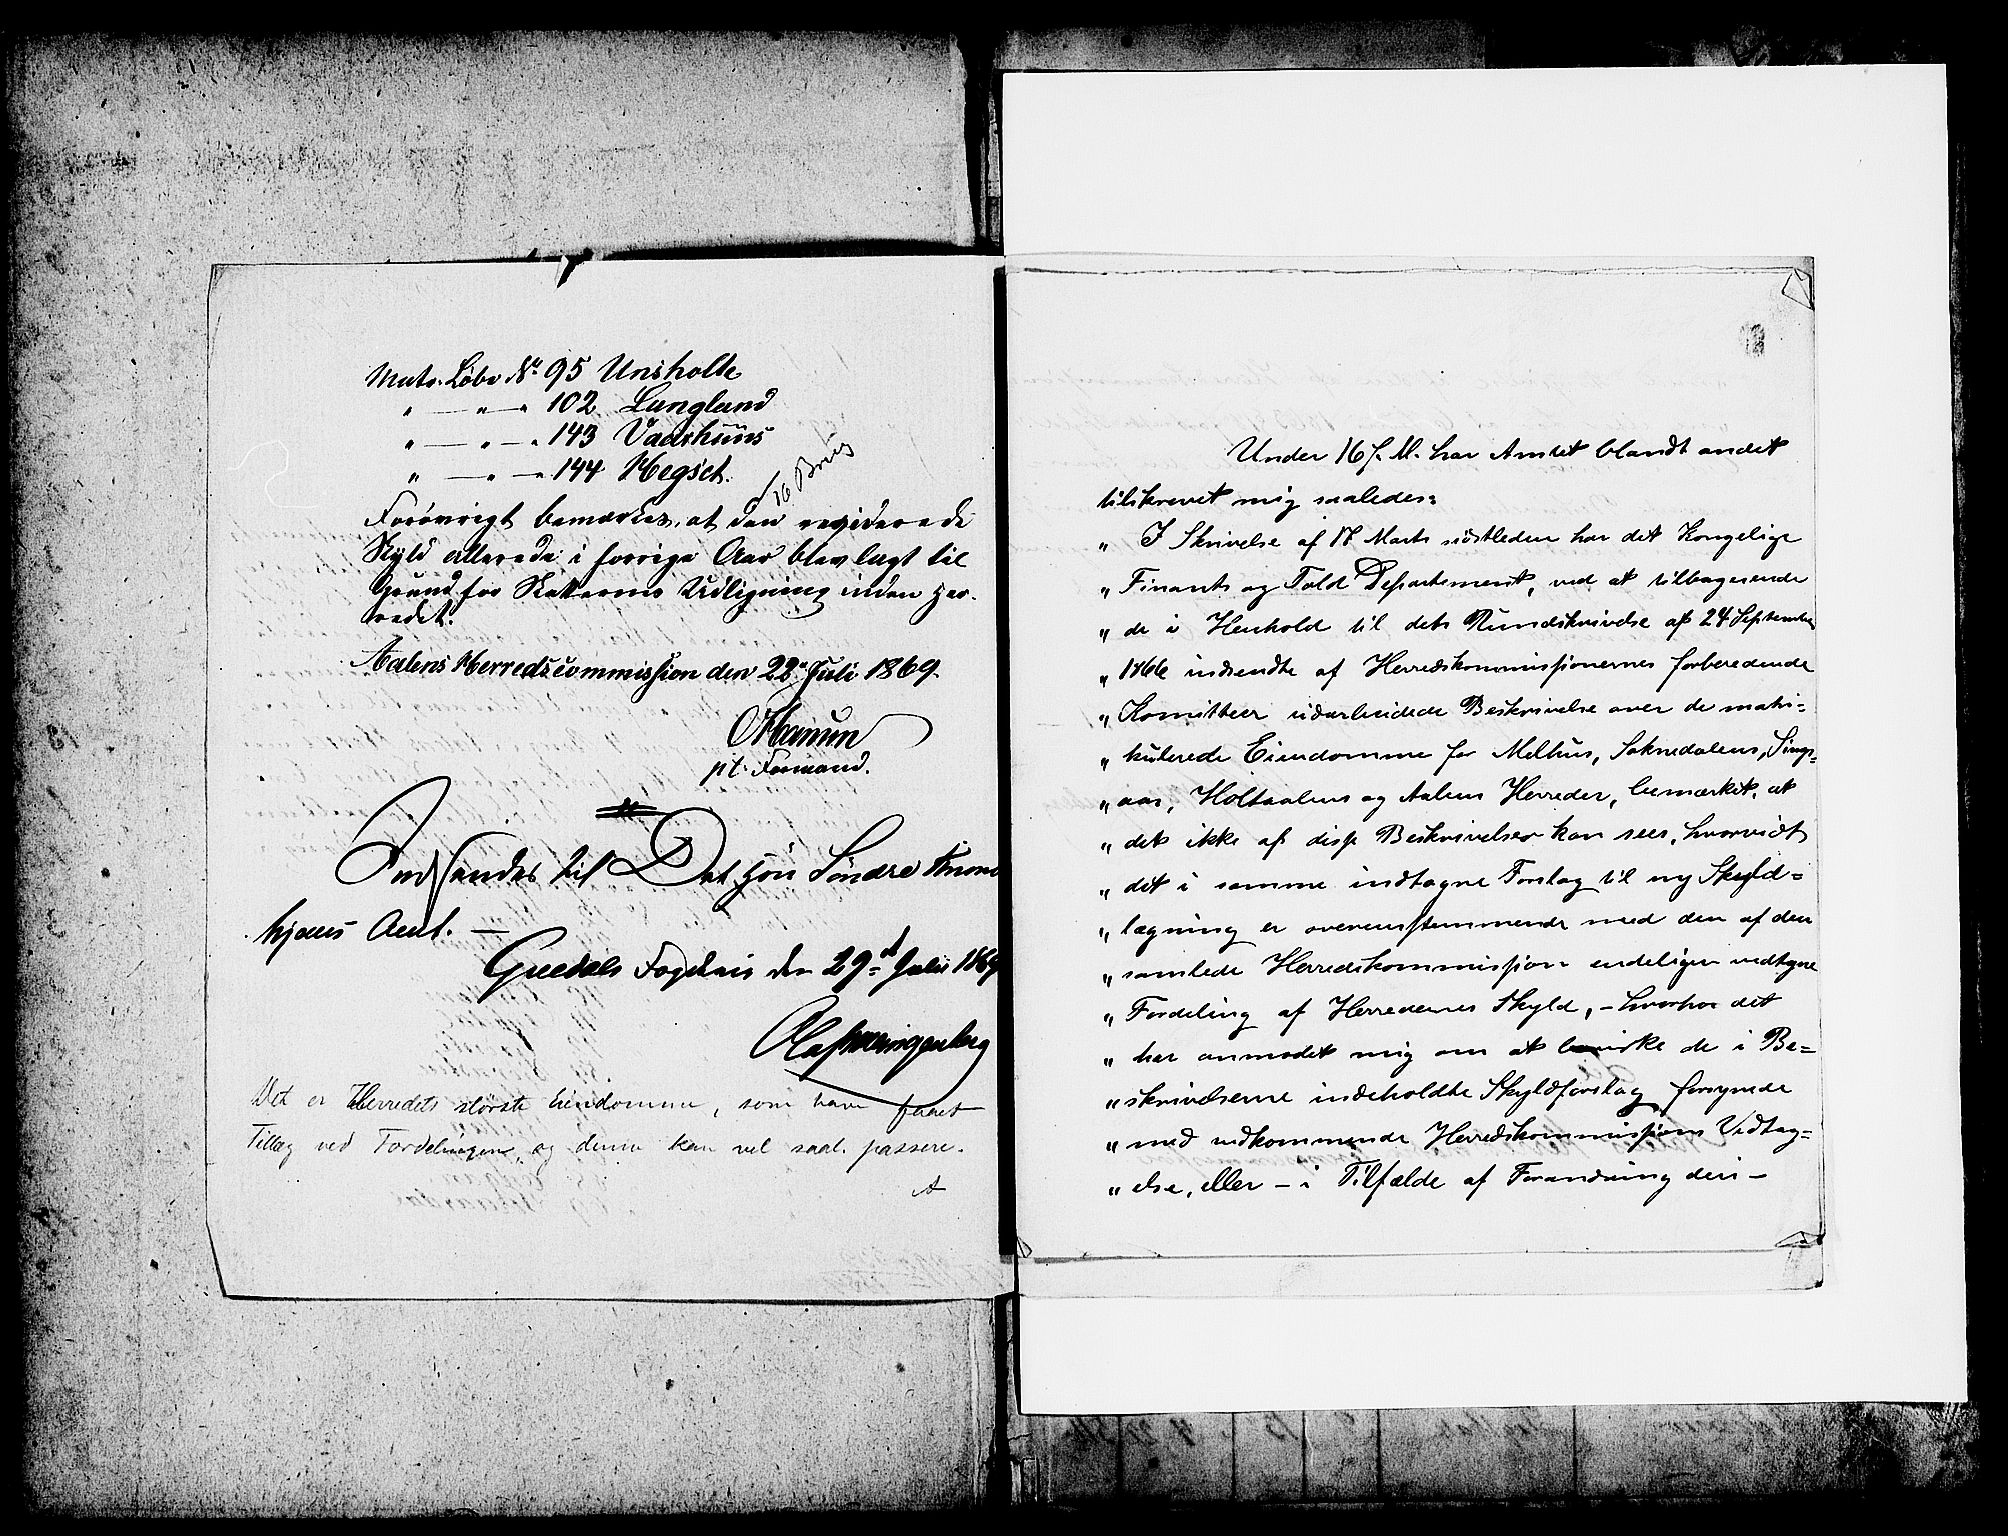 Matr. Løbe No 95 Unsholte
" — " — " 102 Langland
" — " — " 143 Vaarhuus
" — " — " 144 Hegset.
Forøvrigt bemærkes, at den reviderede
Skyld allerede i forrige Aar blev lagt til
Grund for Skatternes Udligning inden Her-
redet.
Aalens Herredscommission den 22de Juli 1869.
pt. Formand.
Indsendes til Det Høie Søndre Thrond
hjems Amt. —
Guldals Fogderi den 29de Juli 1869
Det er Herredets største Eiendomme, som have faaet
Tillæg ved Fordelingen, og denne kan vel saal. passere.
A
Under 16 f. M. har Amtet blandt andet
tilskrevet mig saaledes:
" I Skrivelse af 17 Marts sidstleden har det Kongelige
" Finants og Told Departement, ved at tilbagesende
" de i Henhold til dets Rundskrivelse af 24 September
" 1866 indsendte af Herredskommissionernes forberedende
" Komitteer udarbeidede Beskrivelse over de matri=
" kulerede Eiendomme for Melhus, Soknedalens, Sings=
" aas, Holtaalens og Aalens Herreder, bemærket, at
" det ikke af disse Beskrivelser kan sees, hvorvidt
" det i samme indtagne Forslag til ny Skyld=
" lægning er overensstemmende med den af den
" samlede Herredskommission endeligen vedtagne
" Fordeling af Herredernes Skyld, – hvorhos det
" har anmodet mig om at bevirke de i Be=
" skrivelserne indeholdte Skyldforslag forsynede
" med vedkommende Herredskommissions Vedtag=
" else, eller – i Tilfælde af Forandring deri –